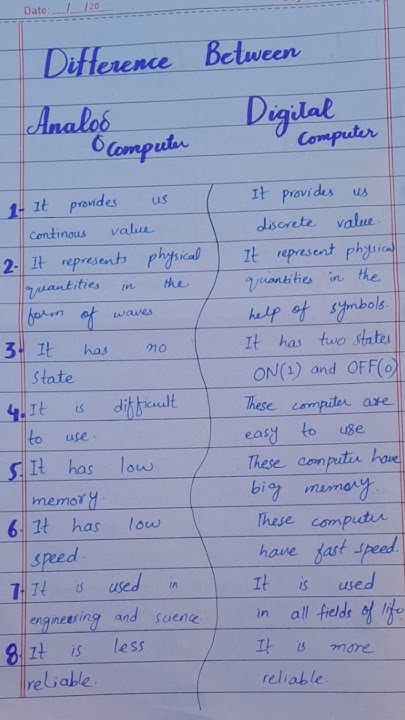 Date: __/__/20
Difference Between
Analog Computer
Digital Computer
1- It provides us
continous value
It provides us
discrete value.
2- It represents physical
quantities in the
form of waves
It represent physical
quantities in the
help of symbols.
3- It has no
state
It has two states
ON(1) and OFF(0)
4. It is difficult
to use.
These computer are
easy to use
5. It has low
memory.
These computer have
big memory.
6. It has low
speed.
These computer
have fast speed.
7- It is used in
engineering and science
It is used
in all fields of life.
8. It is less
reliable.
It is more
reliable.